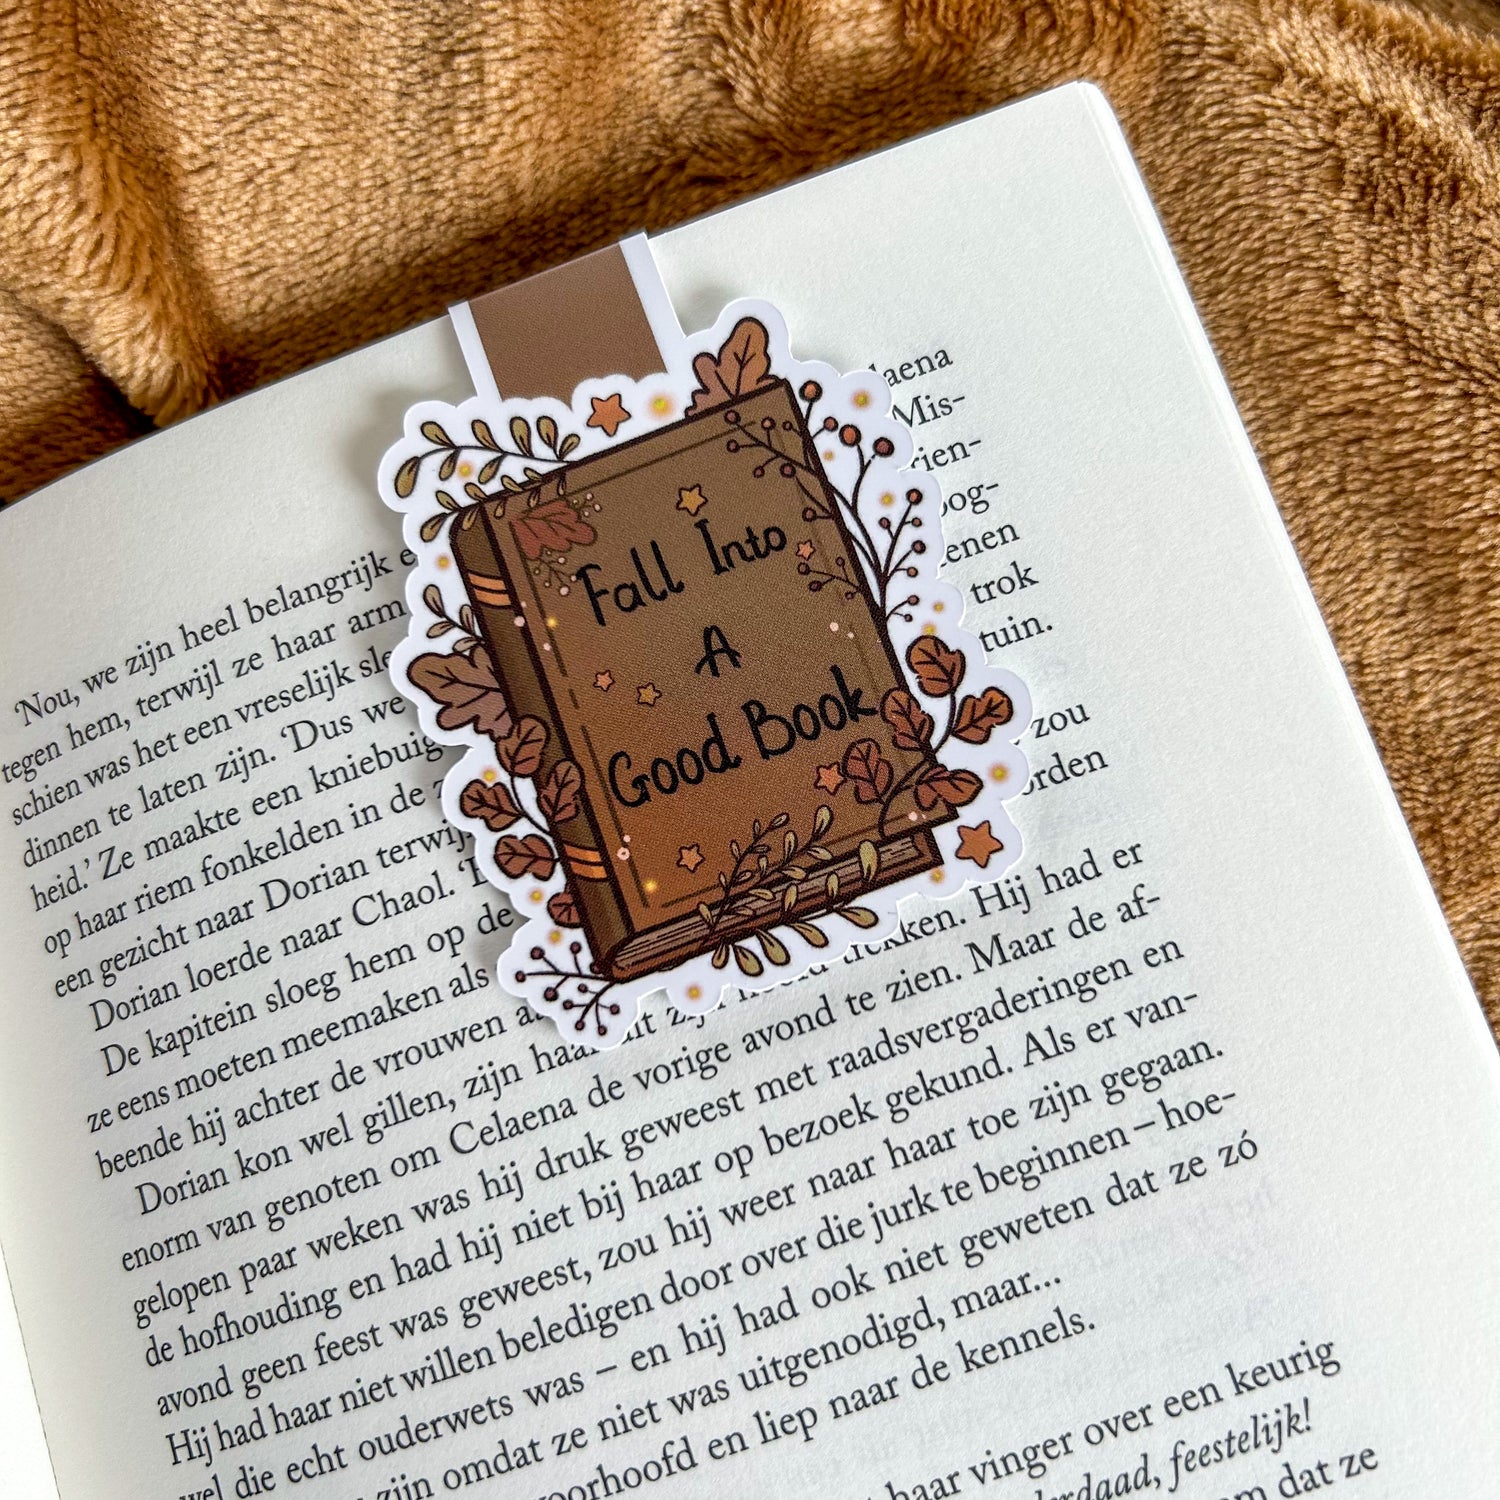 Fall Into
A
Good Book
Mis-
trok
'Nou, we zijn heel belangrijk
tegen hem, terwijl ze haar arm tuin.
schien was het een vreselijk
dinnen te laten zijn. 'Dus we zou
heid.' Ze maakte een
op haar riem fonkelden in de
een gezicht naar Dorian
Dorian loerde naar Chaol.
De kapitein sloeg hem op de trekken. Hij had er
ze eens moeten meemaken als Maar de af-
beende hij achter de vrouwen
Dorian kon wel gillen, zijn
enorm van genoten om Celaena de vorige avond te zien.
gelopen paar weken was hij druk geweest met raadsvergaderingen en
de hofhouding en had hij niet bij haar op bezoek gekund. Als er van-
avond geen feest was geweest, zou hij weer naar haar toe zijn gegaan.
Hij had haar niet willen beledigen door over die jurk te beginnen – hoe-
wel die echt ouderwets was – en hij had ook niet geweten dat ze zó
zijn omdat ze niet was uitgenodigd, maar...
en liep naar de kennels.
haar vinger over een keurig
feestelijk!
dat ze